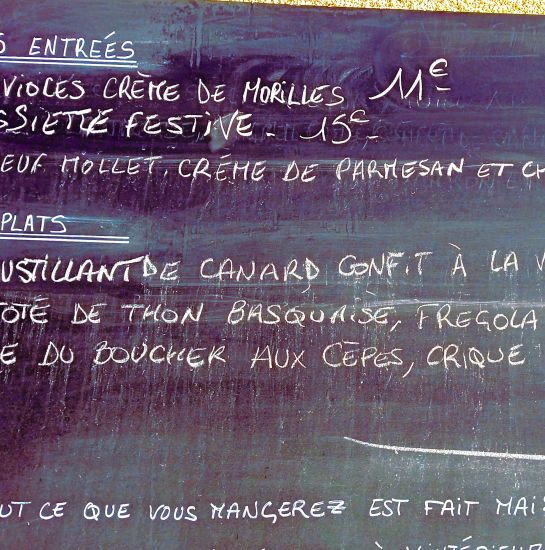 S ENTREÉS
VIOLES CRÈME DE MORILLES 11€
SSIETTE FESTIVE - 15€-
EUF MOLLET, CRÉME DE PARMESAN ET CH
PLATS
USTILLANT DE CANARD CONFIT À LA V
TOTÉ DE THON BASQUAISE, FREGOLA
E DU BOUCHER AUX CÈPES, CRIQUE
UT CE QUE VOUS MANGEREZ EST FAIT MAIS
À L'INTÉRIEUR